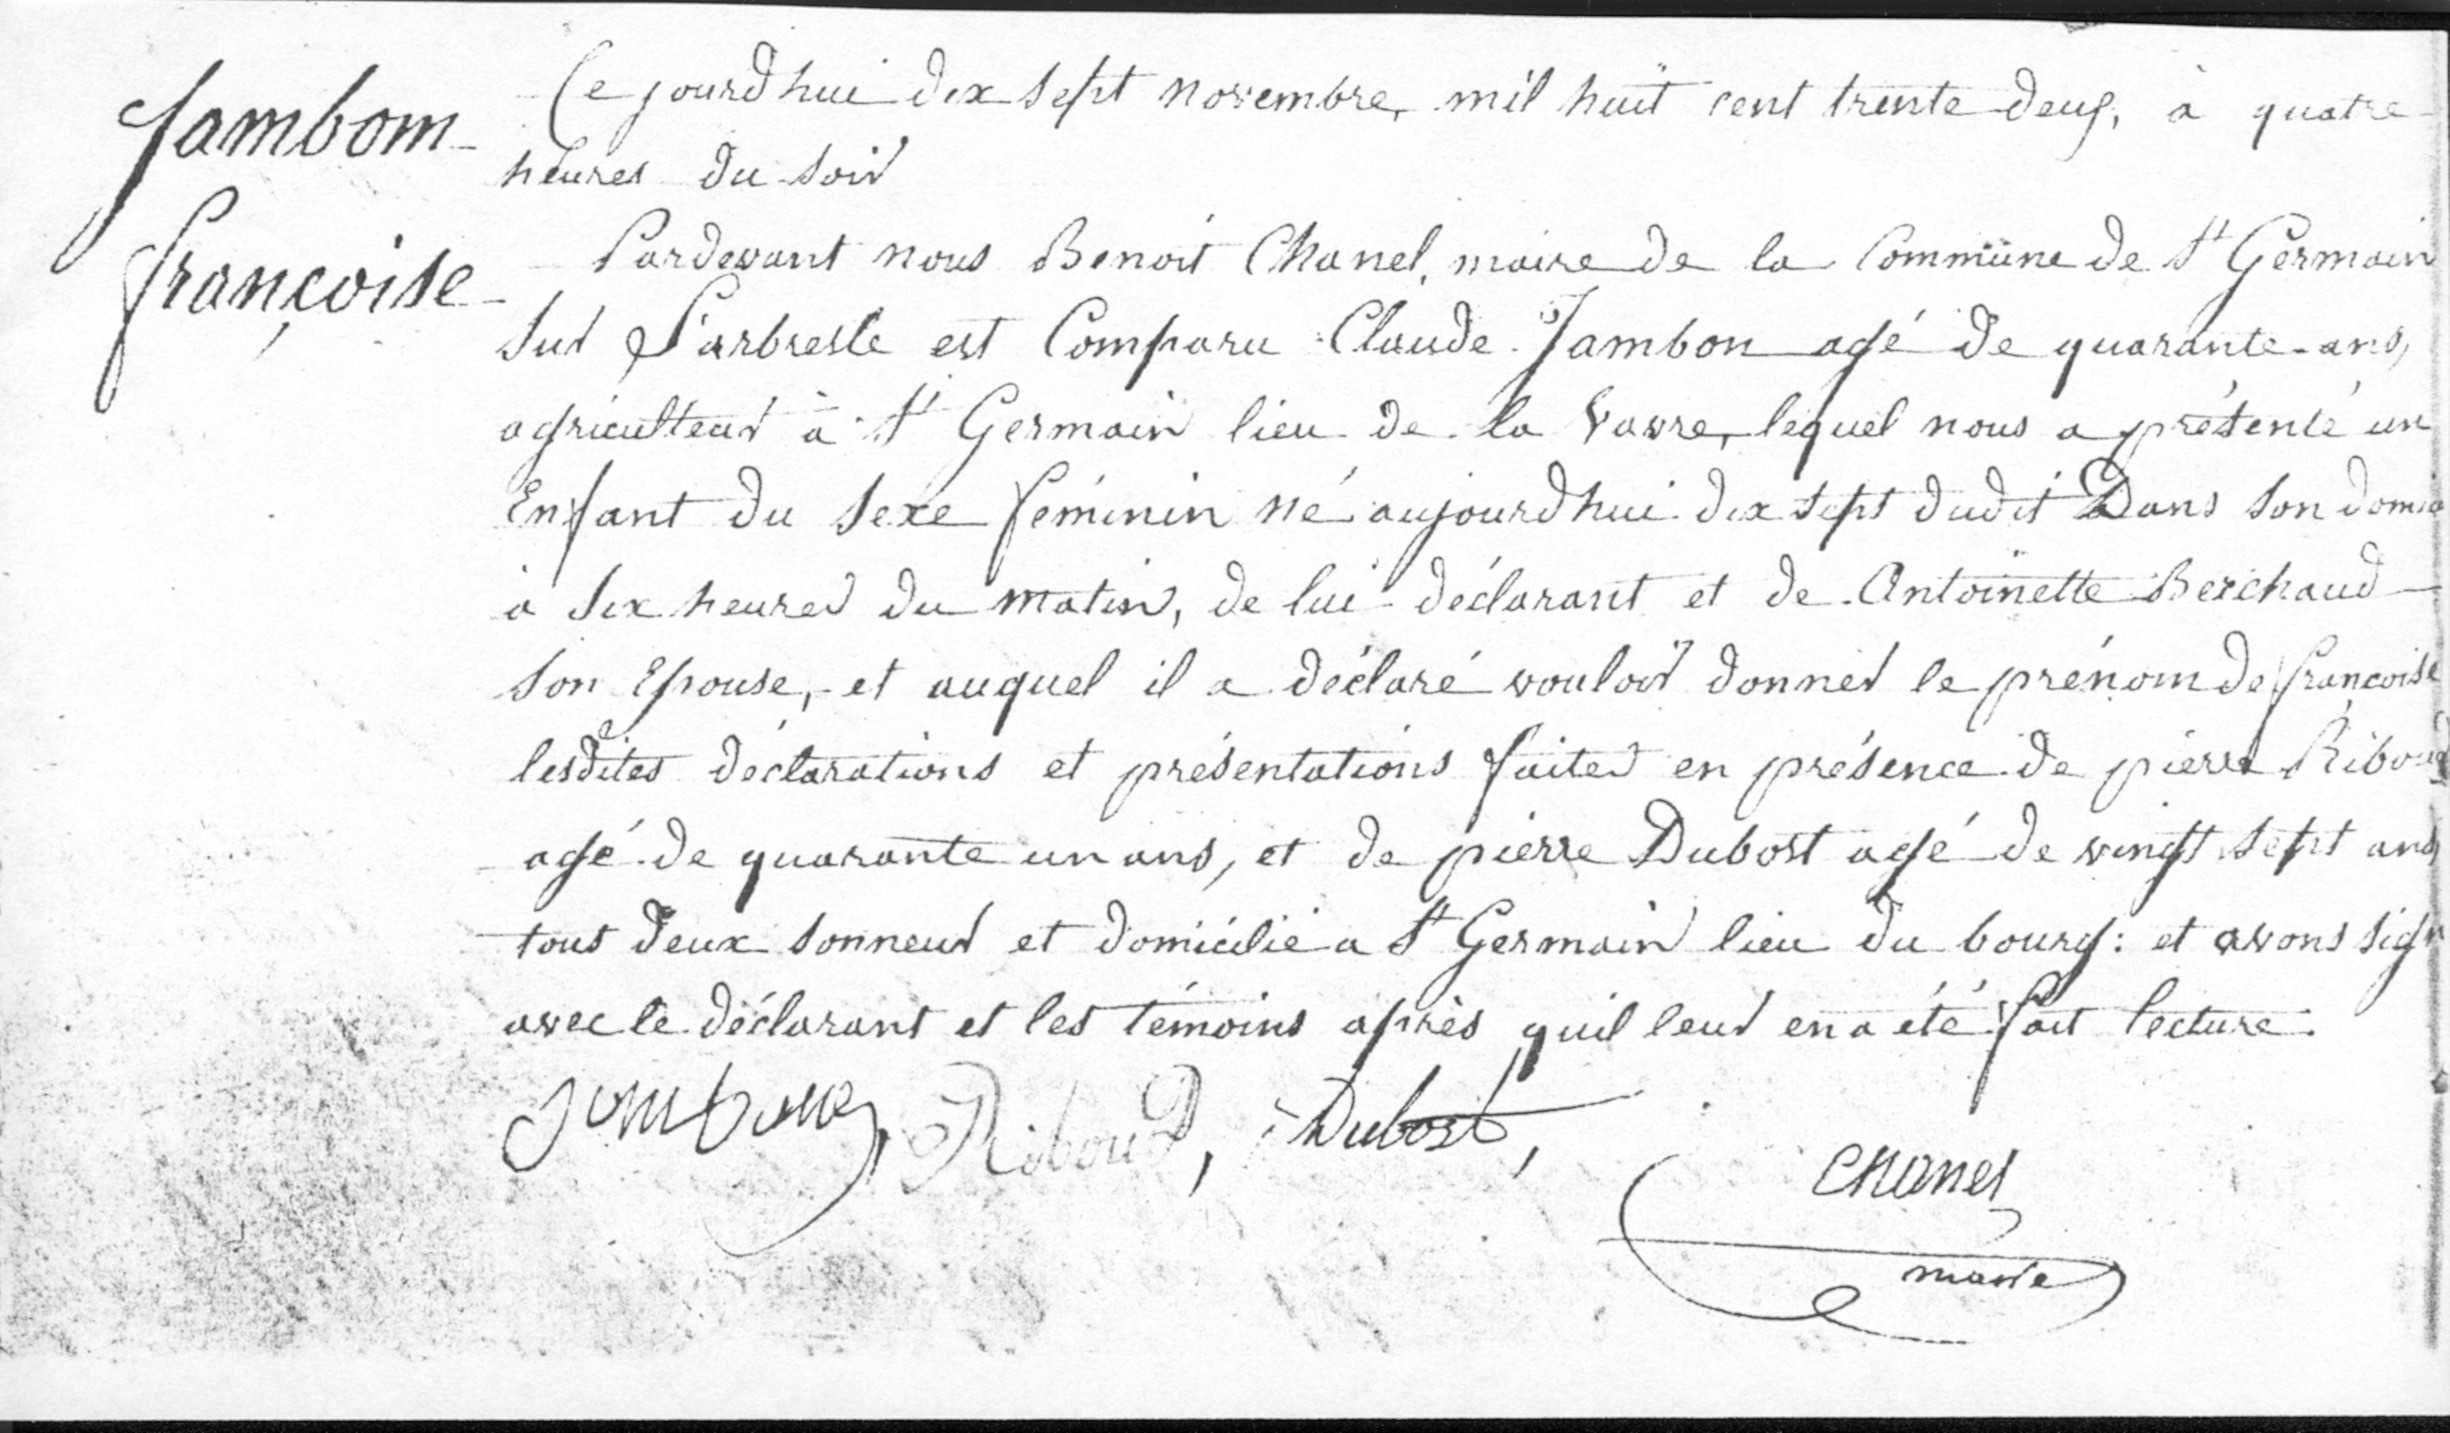 Jambom
françoise
Ce jourd hui dix sept novembre, mil huit cent trente deux, à quatre
heures du soir
Pardevant nous Benoit Chanel, maire de la Commune de St Germain
sur L'arbresle est Comparu Claude Jambon agé de quarante ans,
agriculteur à St Germain lieu de la Vavre, lequel nous a présenté un
Enfant du sexe féminin né aujourd hui dix sept dudit Dans son domic
à six heures du matin, de lui déclarant et de Antoinette Berchaud
son Epouse, et auquel il a déclaré vouloir donner le prénom de françoise
lesdites déclarations et présentations faites en présence de pierre Riboud
agé de quarante un ans, et de pierre Dubost agé de vingt sept ans,
tous deux sonneur et domicilié a St Germain lieu du bourg : et avons sign
avec le déclarant et les témoins après quil leur en a été fait lecture.
Jambon, Riboud, Dubost,
Chanel
maire